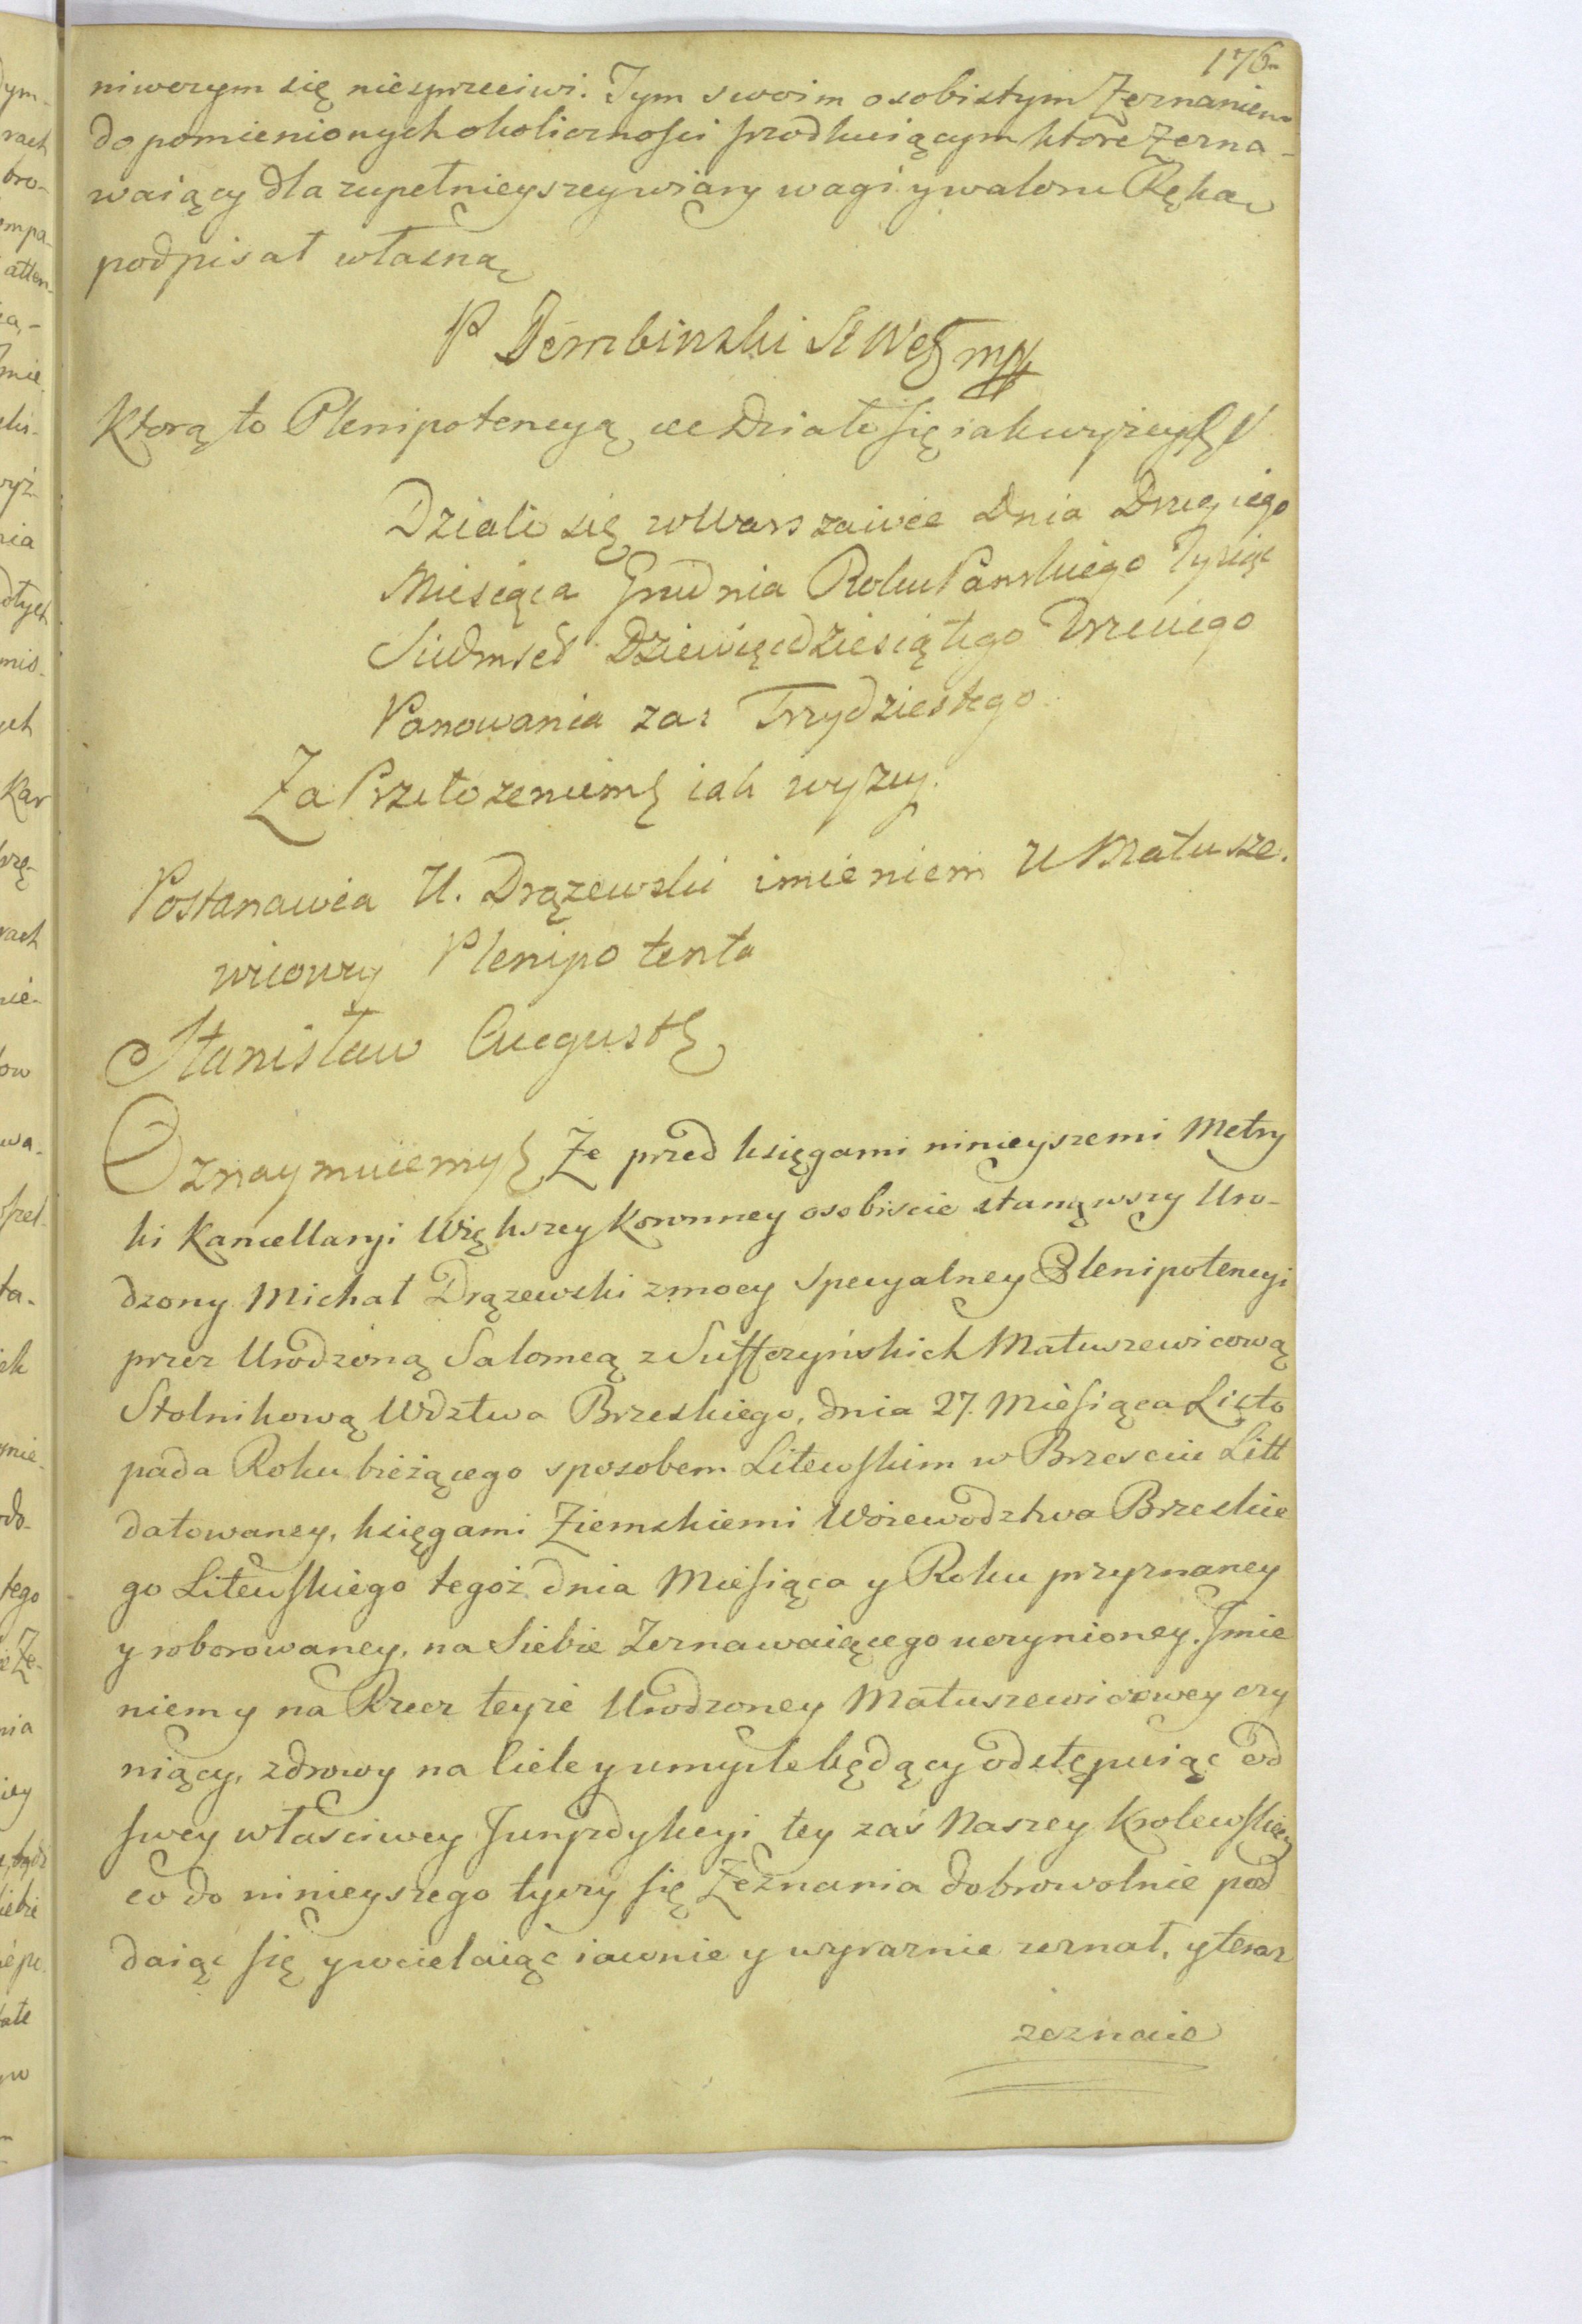 176
niwczym się niesprzeciwi. Tym swoim osobistym Zeznaniem
do pomienionych okoliczności srodkuiącym ktore Zezna-
waiący dla zupełnieyszey wiary wagi y waloru Ręką
podpisał własną
P Dembinski St Weg mp
Ktorą to Plenipotencyą etc Działo się iak wyzey
Działo się w Warszawie Dnia Drugiego
Miesiąca Grudnia Roku Panskiego Tysiąc
Siedmset Dziewięcdziesiątego Trzeciego
Panowania zas Trzydziestego
Za Przełozeniem iak wyzey.
Postanawia U. Drązewski imieniem U Matusze.
wicowy Plenipotenta
Stanisław August
Oznaymuiemy Ze przed księgami ninieyszemi Metry
ki Kancellaryi Większey Koronney osobiscie stanąwszy Uro-
dzony Michał Drązewski z mocy Specyalney Plenipotencyi
przez Urodzoną Salomeą z Suffczyńskich Matuszewicową
Stolnikową Wdztwa Brzeskiego, dnia 27. Miesiąca Listo
pada Roku bieżącego sposobem Litewskim w Brzesciu Litt
datowaney, księgami Ziemskiemi Woiewodztwa Brzeskie
go Litewskiego tegoż dnia Miesiąca y Roku przyznaney
y roborowaney, na Siebie Zeznawaiącego uczynioney. Imie
niem y na Rzecz teyże Urodzoney Matuszewicowey czy
niący, zdrowy na ciele y umysle będący odstępuiąc od
swey właściwey Juryzdykcyi tey zaś Naszey Krolewskiey
co do ninieyszego tyczy się Zeznania dobrowolnie pod
daiąc się y wcielaiąc iawnie y wyraznie zeznał, y teraz
zeznaie